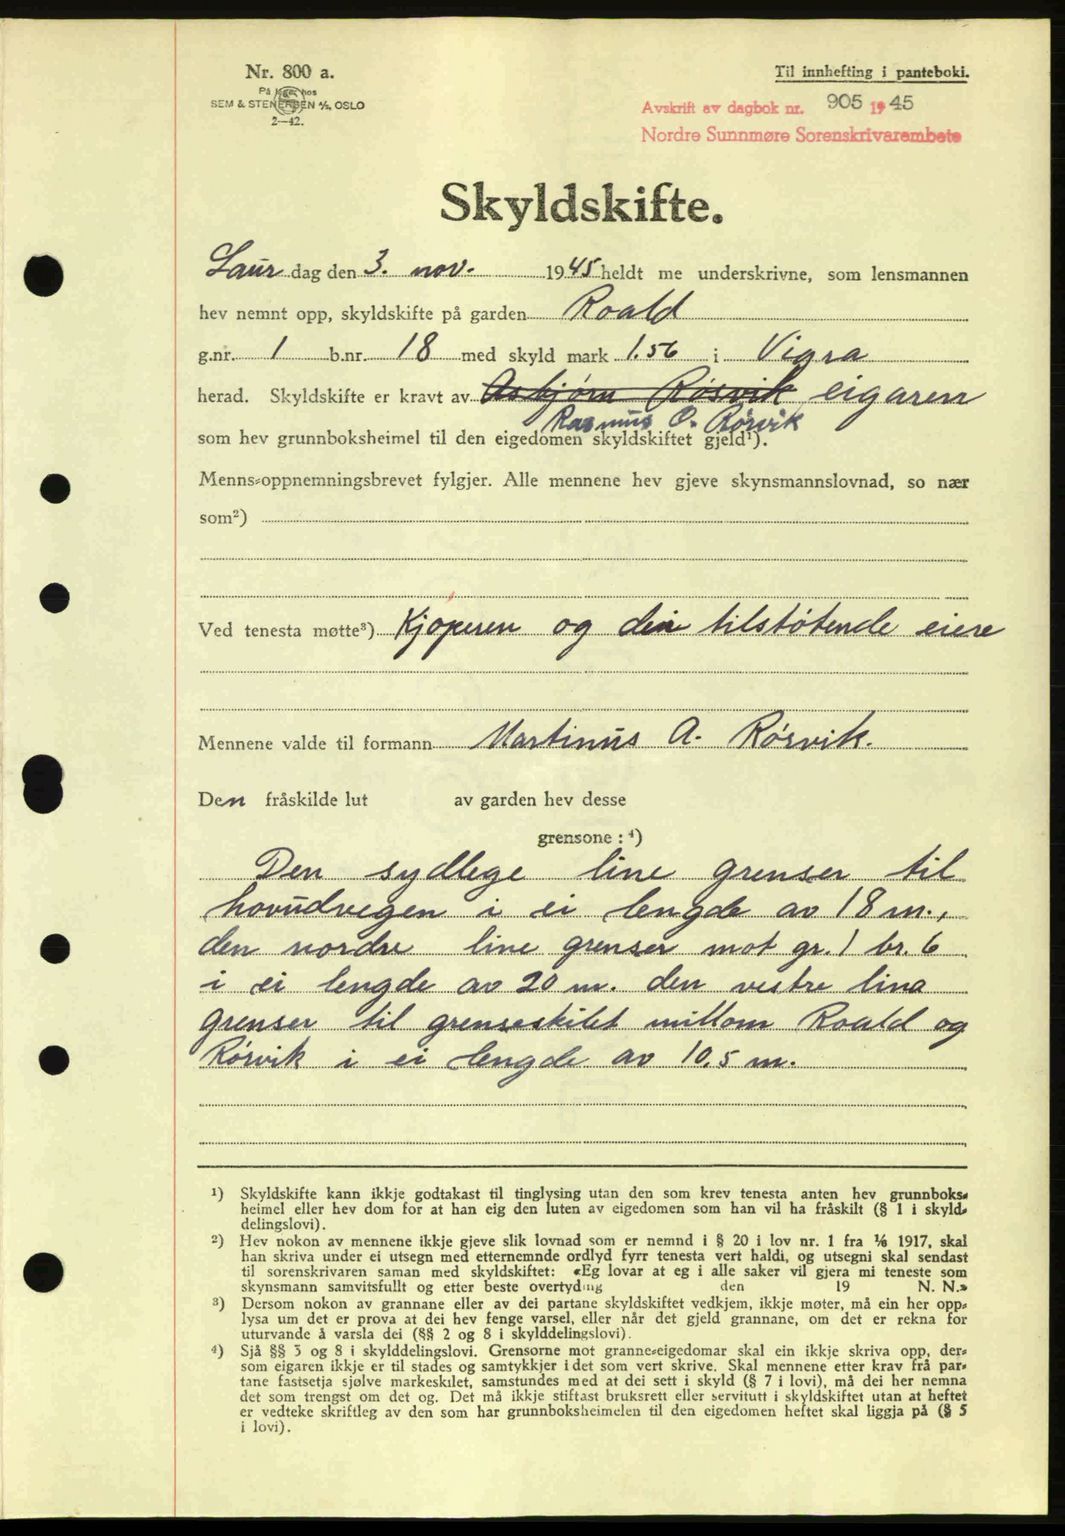 Nr. 800 a.
På lager hos
SEM & STENERSEN A/S, OSLO
2-42.
Til innhefting i panteboki.
Avskrift av dagbok nr. 905 1945
Nordre Sunnmøre Sorenskrivarembete
Skyldskifte.
Laur dag den 3. nov. 1945 heldt me underskrivne, som lensmannen
hev nemnt opp, skyldskifte på garden Roald
g.nr. 1 b.nr. 18 med skyld mark 1.56 i Vigra
herad. Skyldskifte er kravt av Asbjørn Røsvik eigaren
Rasmus O. Rørvik
som hev grunnboksheimel til den eigedomen skyldskiftet gjeld¹).
Menns-oppnemningsbrevet fylgjer. Alle mennene hev gjeve skynsmannslovnad, so nær
som²)
Ved tenesta møtte³) Kjøperen og dei tilstøtende eiere
Mennene valde til formann Martinus A. Rørvik.
Den fråskilde lut av garden hev desse
grensone : ⁴)
Den sydlege line grenser til
hovudvegen i ei lengde av 18 m.,
den nordre line grenser mot gr. 1 br. 6
i ei lengde av 20 m. den vestre lina
grenser til grenseskilet millom Roald og
Rørvik i ei lengde av 10,5 m.
¹) Skyldskifte kann ikkje godtakast til tinglysing utan den som krev tenesta anten hev grunnboks-
heimel eller hev dom for at han eig den luten av eigedomen som han vil ha fråskilt (§ 1 i skyld-
delingslovi).
²) Hev nokon av mennene ikkje gjeve slik lovnad som er nemnd i § 20 i lov nr. 1 fra 1/6 1917, skal
han skriva under ei utsegn med etternemnde ordlyd fyrr tenesta vert haldi, og utsegni skal sendast
til sorenskrivaren saman med skyldskiftet: «Eg lovar at eg i alle saker vil gjera mi teneste som
skynsmann samvitsfullt og etter beste overtyding den 19 N. N.»
³) Dersom nokon av grannane eller av dei partane skyldskiftet vedkjem, ikkje møter, må ein her opp-
lysa um det er prova at dei hev fenge varsel, eller når det gjeld grannane, om det er rekna for
uturvande å varsla dei (§§ 2 og 8 i skylddelingslovi).
⁴) Sjå §§ 3 og 8 i skylddelingslovi. Grensorne mot granne-eigedomar skal ein ikkje skriva opp, der-
som eigaren ikkje er til stades og samtykkjer i det som vert skrive. Skal mennene etter krav frå par-
tane fastsetja sjølve markeskilet, samstundes med at dei sett i skyld (§ 7 i lovi), må dei her nemna
det som trengst om det og. Det må ikkje stiftast bruksrett eller servitutt i skyldskiftet utan at heftet
er vedteke skriftleg av den som har grunnboksheimelen til den eigedomen heftet skal liggja på (§ 5
i lovi).